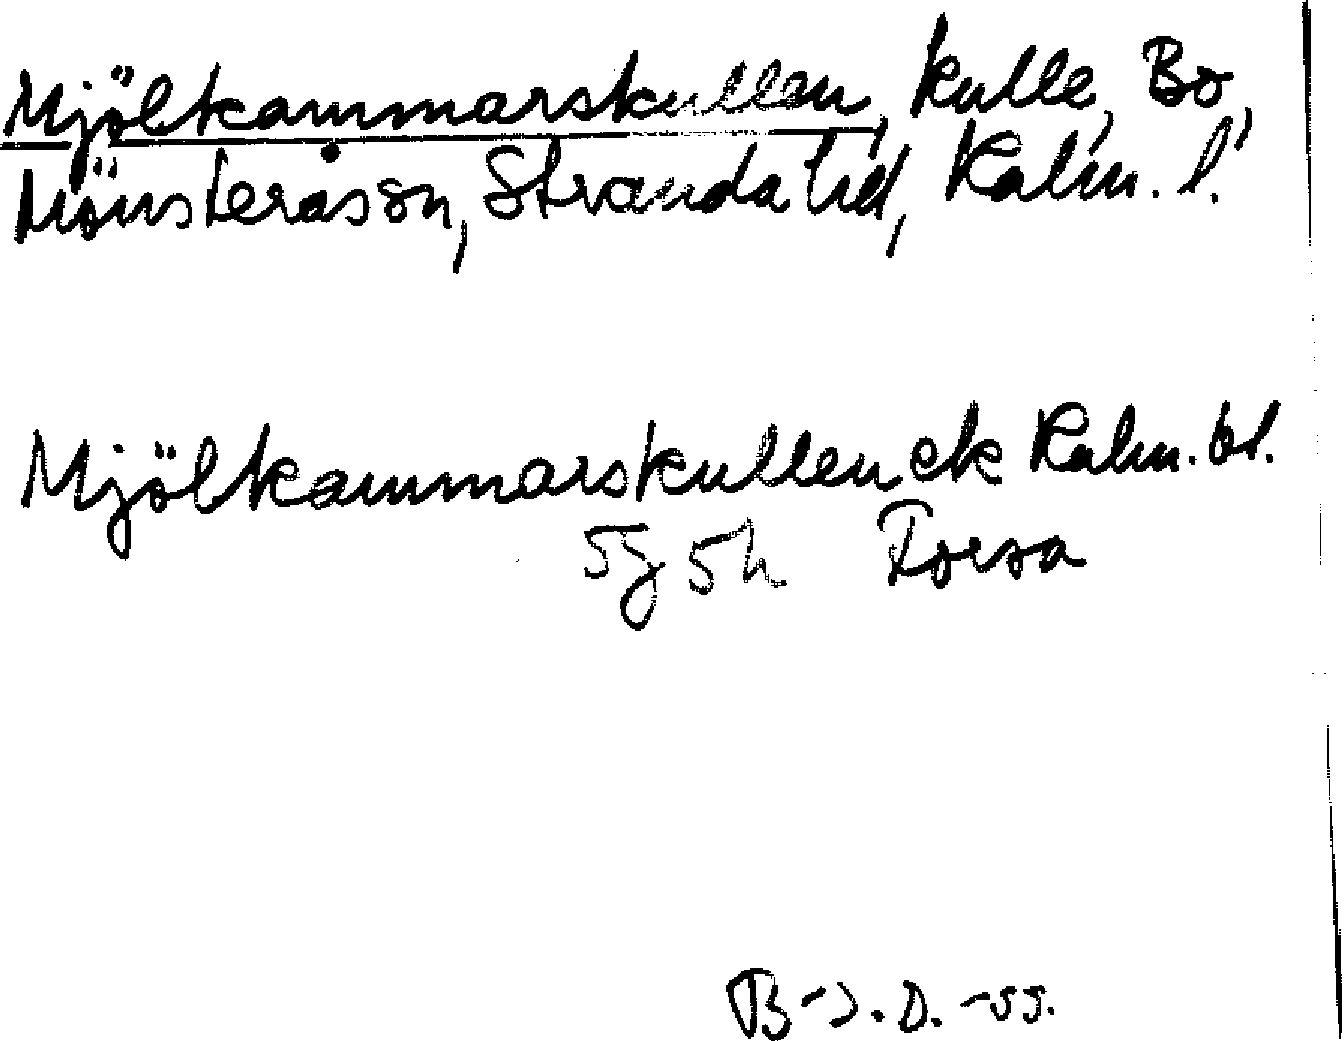 Mjölkammarskullen, kulle, Bo,
Mönsterås sn, Stranda hd, Kalm. l.
Mjölkammarskullen ek Kalm. bl.
5g 5h Forsa
B-J. D. -55.